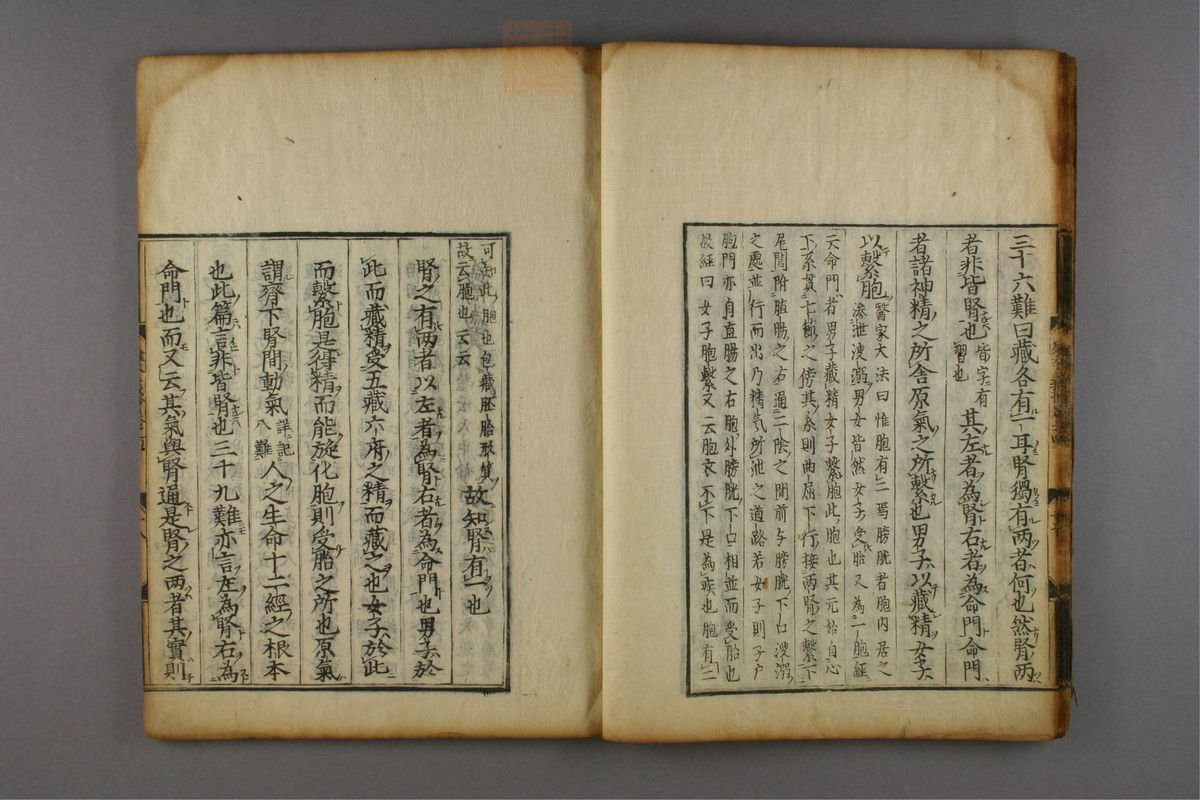 三十六難曰藏各有一耳腎獨有兩者何也然腎兩
者非皆腎也
皆字有
習也
其左者為腎右者為命門命門
者諸神精之所舍原氣之所繫也男子以藏精女子
以繫胞
醫家大法曰惟胞有二焉膀胱者胞内居之
滲泄溲溺男女皆然女子受胎又為一胞經
云命門者男子藏精女子繫胞此胞也其元始自心
下系貫七節之傍其系則曲屈下行接兩腎之繫下
尾閭附脏腸之右通二陰之間前与膀胱下口溲溺
之處並行而出乃精气所泄之道路若女子則子户
胞門亦自直腸之右胞外膀胱下口相並而受胎也
故經曰女子胞繫又云胞衣不下是為疾也胞有二
可知此胞也包藏胚胎
故云胞也云云
故知腎有一也
腎之有兩者以左者為腎右者為命門也男子於
此而藏精受五藏六府之精而藏之也女子於此
而繫胞是得精而能旋化胞則受胎之所也原氣
謂臍下腎間動氣
詳記
八難
人之生命十二經之根本
也此篇言非皆腎也三十九難亦言左為腎右為
命門也而又云其氣與腎通是腎之兩者其實則